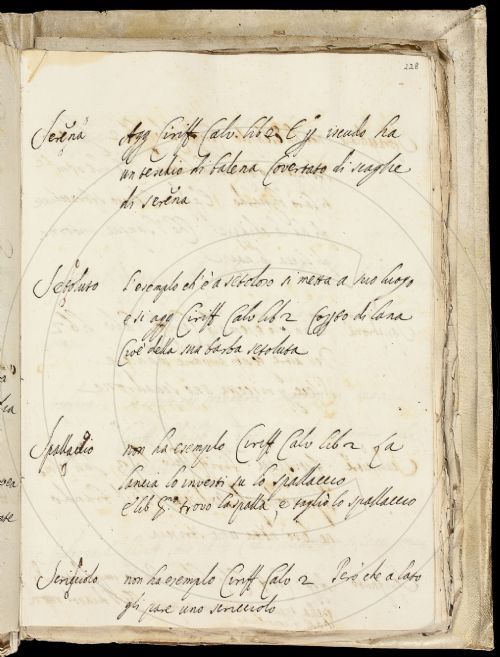 228
Serena Agg Ciriff Calv. lib 2 E p iscudo ha
un teschio di balena Covertato di scaglie
di serena
Setoluto L'esemplo ch'è a setoloso si metta a suo luogo
e si agg Ciriff Calv lib 2 Coperto di lana
Cioè della sua barba setoluta
Spallaccio non ha esemplo Ciriff Calv lib 2 La
lancia lo investi su lo spallaccio
E lib trovo la spalla e taglio lo spallaccio
Scricciolo non ha esemplo Ciriff Calv 2 Però che a lato
gli pare uno scricciolo